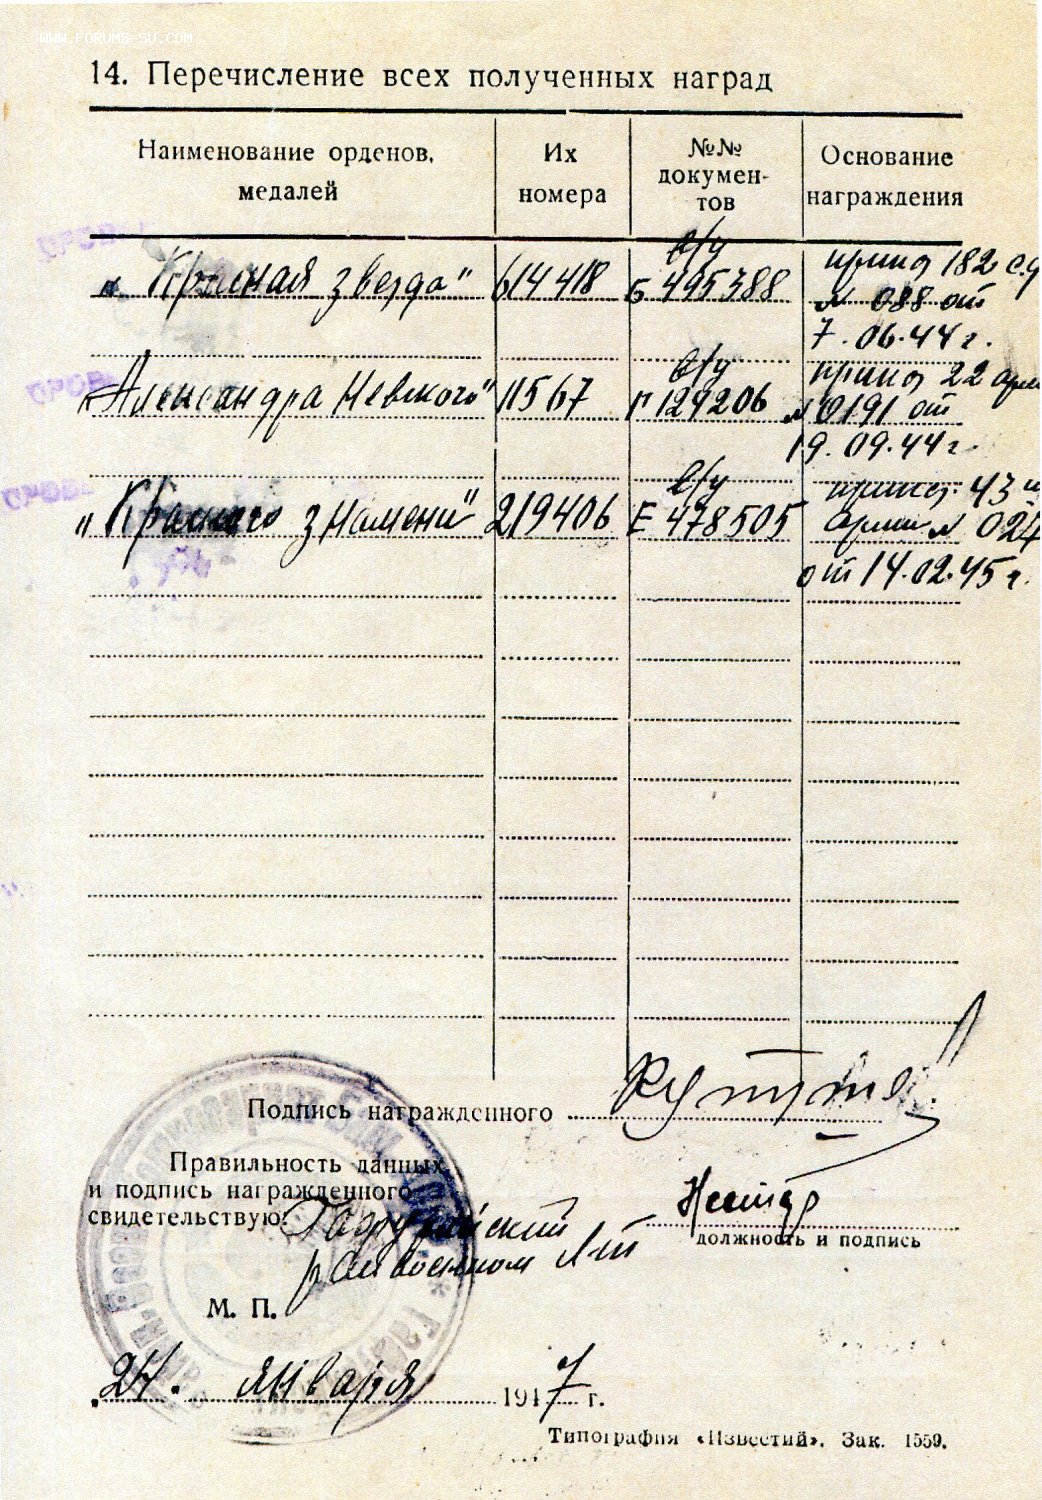 WWW.FORUMS-SU.COM
14. Перечисление всех полученных наград
Наименование орденов, медалей
Их номера
№№ документов
Основание награждения
"Красная звезда" 614418 в/у Б 495388 приказ 182 с.д № 088 от 7.06.44 г.
"Александра Невского" 11567 в/у Г 124206 приказ 22 арм № 0191 от 19.09.44 г.
"Красного знамени" 219406 в/у Е 478505 приказ 43й армии № 024 от 14.02.45 г.
Подпись награжденного
Правильность данных
и подпись награжденного
свидетельствую:
должность и подпись
М. П.
24. января 1947 г.
Типография «Известий». Зак. 1559.